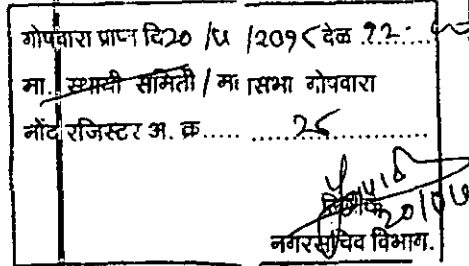 गोषवारा प्राप्त दि20 /५ /20१८ वेळ .१२:
मा. स्थायी समिती / मा सभा गोषवारा
नोंद रजिस्टर अ. क्र..... 2८
लिपीक
नगरसचिव विभाग.